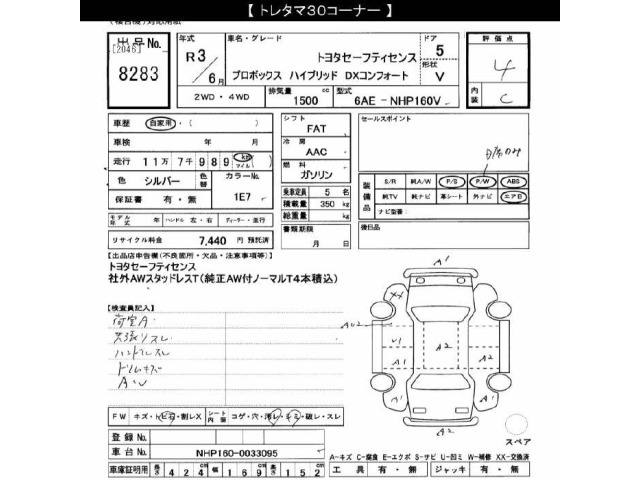 【 トレタマ30コーナー 】
出品No.
[2046]
8283
年式
R 3
6月
車名・グレード
トヨタセーフティセンス
プロボックス ハイブリッド DXコンフォート
ドア
5
形状
V
評価点
4
内装
C
2WD・4WD
排気量 1500 cc
型式 6AE - NHP160V
車歴 自家用・( )
車検 年 月
走行 11万 7千 989 km マイル
色 シルバー
色替
カラーNo. 1E7
保証書 有・無
モデル年式 年
ハンドル 左・右
ディーラー・並行
リサイクル料金 7,440 円 預託済
シフト FAT
冷房 AAC
燃料 ガソリン
乗車定員 5 名
積載量 350 kg
総重量 kg
書類期限
月 日
セールスポイント
装備品
S/R 純A/W P/S P/W ABS
純TV 純ナビ 革シート 外ナビ エアB
ナビ型番:
後日品
【出品店申告欄(不良箇所・欠品・注意事項等)】
トヨタセーフティセンス
社外AWスタッドレスT(純正AW付ノーマルT4本積込)
【検査員記入】
荷室A
ハンドルスレ
A1
XX
U1
A1
A2
A2
A1
A1
A1
A2
スペア
FW キズ・トビ石・割レX
シート内張 コゲ・穴・汚レ・キミ・破レ・スレ
登録No.
車台No. NHP160-0033095
車庫証明用 長さ 424 cm 幅 169 cm 高さ 152 cm
A-キズ C-腐食 E-エクボ S-サビ U-凹ミ W-補修 XX-交換済
工具 有・無 ジャッキ 有・無